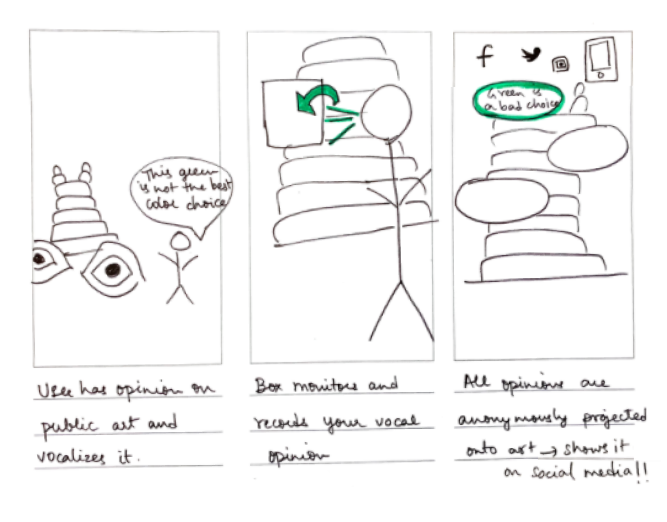 This green
is not the best
color choice
f
Green is
a bad choice
User has opinion on
public art and
vocalizes it.
Box monitors and
records your vocal
opinion
All opinions are
anonymously projected
onto art → shows it
on social media!!